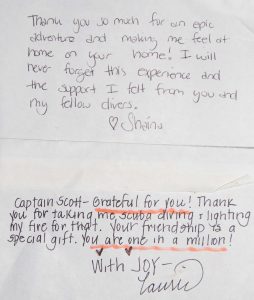 Thank you so much for an epic
adventure and making me feel at
home on your home! I will
never forget this experience and
the support I felt from you and
my fellow divers.
♡ Shaina
Captain Scott- Grateful for you! Thank
you for taking me scuba diving & lighting
my fire for that. Your friendship is a
special gift. You are one in a million!
With JOY-
Laurie